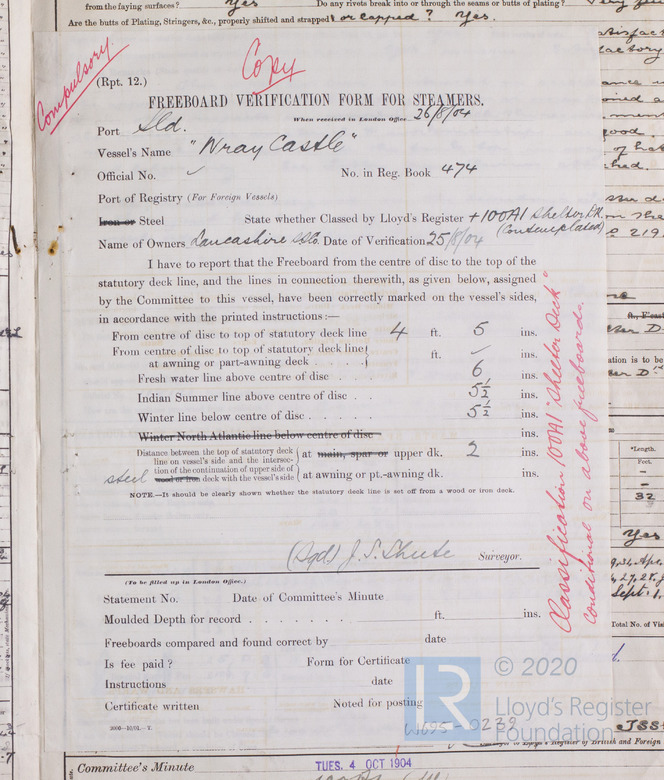 from the faying surfaces? Yes Do any rivets break into or through the seams or butts of plating?
Are the butts of Plating, Stringers, &c., properly shifted and strapped or capped? Yes.
Compulsory
Copy
(Rpt. 12.)
FREEBOARD VERIFICATION FORM FOR STEAMERS.
When received in London Office 26/8/04
Port Sld.
Vessel's Name "Wray Castle"
Official No. No. in Reg. Book 474
Port of Registry (For Foreign Vessels)
Iron or Steel State whether Classed by Lloyd's Register +100A1 Shelter Dk
(Contemplated)
Name of Owners Lancashire SSCo. Date of Verification 25/8/04
I have to report that the Freeboard from the centre of disc to the top of the
statutory deck line, and the lines in connection therewith, as given below, assigned
by the Committee to this vessel, have been correctly marked on the vessel's sides,
in accordance with the printed instructions:—
From centre of disc to top of statutory deck line 4 ft. 5 ins.
From centre of disc to top of statutory deck line
at awning or part-awning deck . . . . . ft. ins.
Fresh water line above centre of disc . . . . 6 ins.
Indian Summer line above centre of disc . . 5½ ins.
Winter line below centre of disc . . . . . 5½ ins.
Winter North Atlantic line below centre of disc ins.
Distance between the top of statutory deck
line on vessel's side and the intersec-
tion of the continuation of upper side of
steel wood or iron deck with the vessel's side
at main, spar or upper dk. 2 ins.
at awning or pt.-awning dk. ins.
NOTE.—It should be clearly shown whether the statutory deck line is set off from a wood or iron deck.
Classification 100A1 "Shelter Deck"
conditional on above freeboards.
(Sgd) J. S. Shute Surveyor.
(To be filled up in London Office.)
Statement No. Date of Committee's Minute
Moulded Depth for record . . . . . . . ft. ins.
Freeboards compared and found correct by date
Is fee paid? Form for Certificate
Instructions date
Certificate written Noted for posting
2000—10/01.—T.
W695-0239
LR
© 2020
Lloyd's Register
Foundation
*Length.
Feet.
32
Yes
Sept. 1.
Total No. of Vis
Committee's Minute TUES. 4 OCT 1904